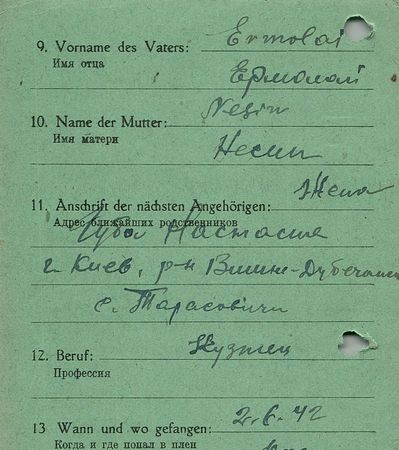 9. Vorname des Vaters: Ermolai
Имя отца
Ермолай
Nesin
10. Name der Mutter:
Имя матери Несин
Жена
11. Anschrift der nächsten Angehörigen:
Адрес ближайших родственников
Настасия
г. Киев, р-н Вышне-Дубечанск
с. Тарасовичи
12. Beruf: Кузнец
Профессия
13 Wann und wo gefangen: 2.6.42
Когда и где попал в плен